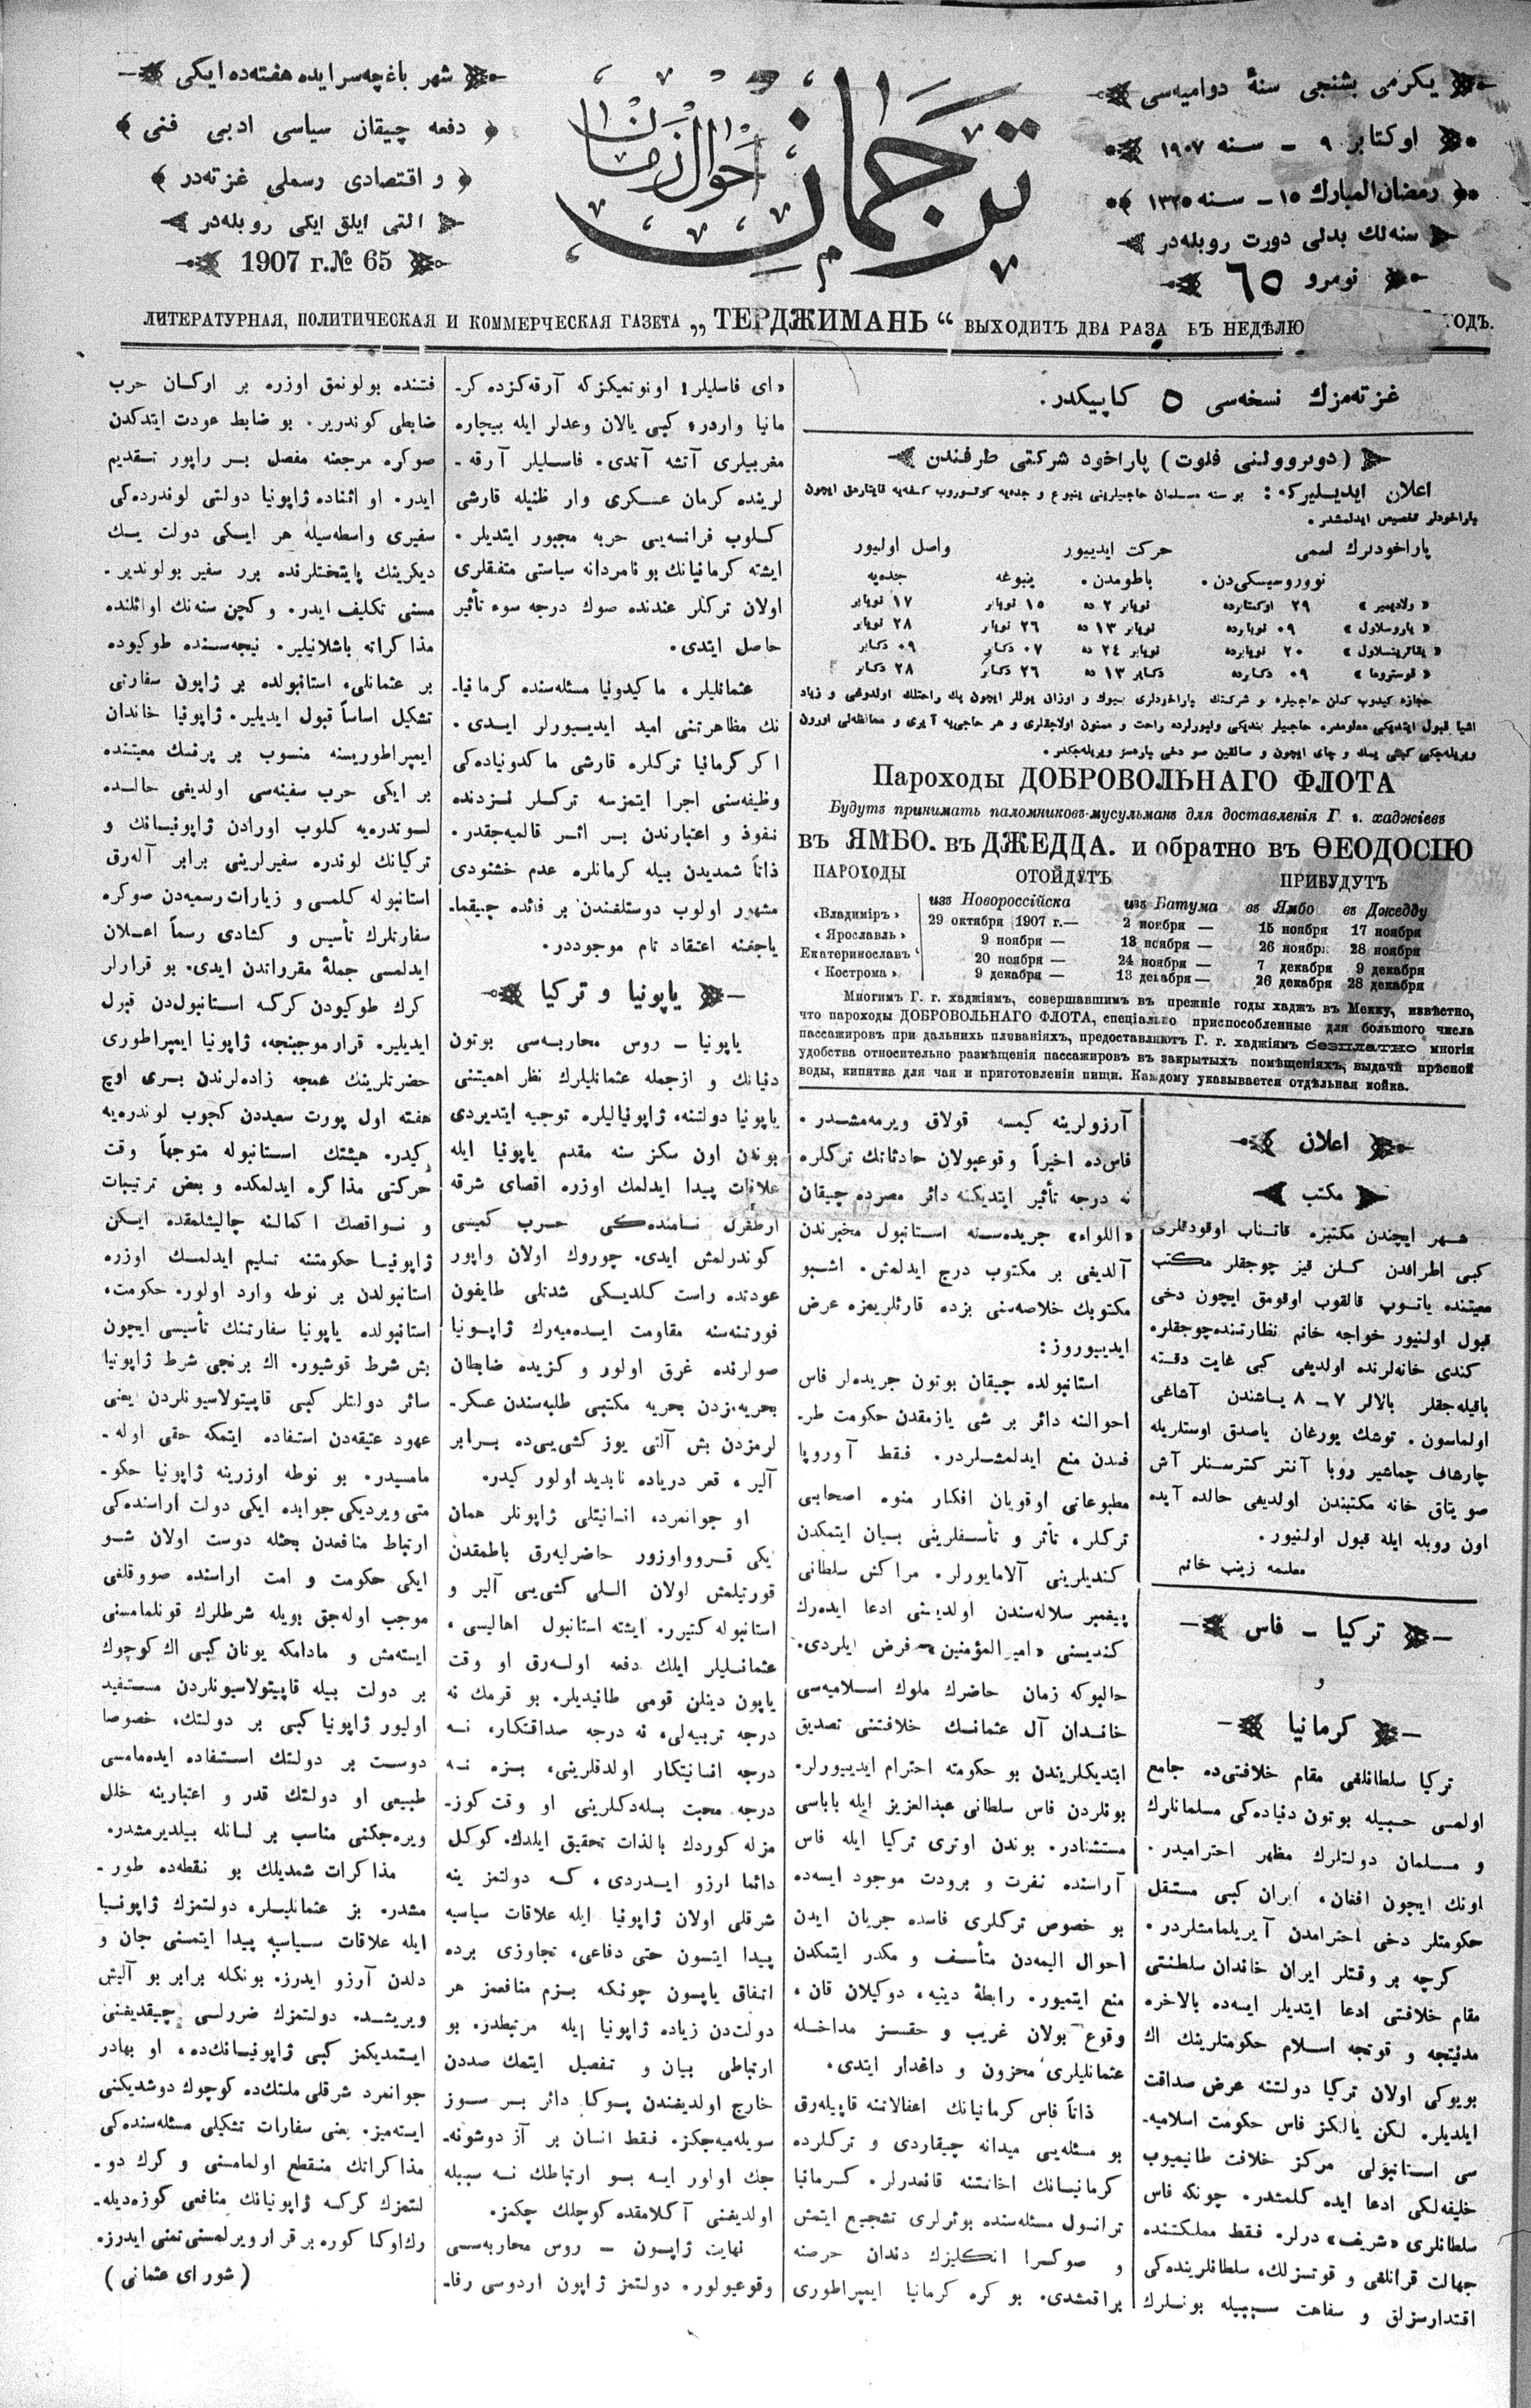 یکرمی بشنجی سنهٔ دوامیه‌سی
اوکتابر ٩ ـ سنه ١٩٠٧
رمضان المبارك ١٥ ـ سنه ١٣٢٥
سنه‌لك بدلی دورت روبله‌در
نومرو ٦٥
ترجمان
احوال زمان
شهر باغچه‌سرایده هفته‌ده ایکی
دفعه چیقان سیاسی ادبی فنی
و اقتصادی رسملی غزته‌در
التی ایلق ایکی روبله‌در
1907 г. № 65
ЛИТЕРАТУРНАЯ, ПОЛИТИЧЕСКАЯ И КОММЕРЧЕСКАЯ ГАЗЕТА „ТЕРДЖИМАНЬ“ ВЫХОДИТЪ ДВА РАЗА ВЪ НЕДѢЛЮ
غزته‌مزك نسخه‌سی ٥ کاپیکدر.
(دوبروولنی فلوت) پاراخود شرکتی طرفندن
اعلان ایدیلیرکه: بو سنه مسلمان حاجیلرینی ینبوع و جده‌یه کوتوروب کفه‌یه قایتارمق ایچون
پاراخودلر تخصیص ایدلمشدر.
پاراخودلرك اسمی حرکت ایدییور واصل اولیور
نووروسیسکی‌دن. باطومدن. ینبوغه جده‌یه
«ولادیمیر» ٢٩ اوکتابرده نویابر ٢ ده ١٥ نویابر ١٧ نویابر
«یاروسلاول» ٠٩ نویابرده نویابر ١٣ ده ٢٦ نویابر ٢٨ نویابر
«یقاترینسلاول» ٢٠ نویابرده نویابر ٢٤ ده ٠٧ دکابر ٠٩ دکابر
«قوستروما» ٠٩ دکابرده دکابر ١٣ ده ٢٦ دکابر ٢٨ دکابر
حجازه کیدوب کلن حاجیلره بو شرکتك پاراخودلری بیوك و اوزاق یوللر ایچون پك راحتلك اولدوغی و زیاد
اشیا قبول ایتدیکی معلومدره حاجیلر بندیکی واپورلرده راحت و ممنون اولاجقلری و هر حاجی‌یه آیری و محافظه‌لی اورون
ویریله‌جکی کبی یمك و چای ایچون و صالقین صو دخی پاره‌سز ویریله‌جکدر.
Пароходы ДОБРОВОЛЬНАГО ФЛОТА
Будутъ принимать паломниковъ-мусульманъ для доставленія Г. г. хаджіевъ
въ ЯМБО. въ ДЖЕДДА. и обратно въ ѲЕОДОСІЮ
ПАРОХОДЫ ОТОЙДУТЪ ПРИБУДУТЪ
изъ Новороссійска изъ Батума въ Ямбо въ Джедду
«Владиміръ» 29 октября 1907 г.— 2 ноября — 15 ноября 17 ноября
«Ярославль» 9 ноября — 13 ноября — 26 ноября 28 ноября
Екатеринославъ 20 ноября — 24 ноября — 7 декабря 9 декабря
«Кострома» 9 декабря — 13 декабря — 26 декабря 28 декабря
Многимъ Г. г. хаджіямъ, совершавшимъ въ прежніе годы хаджъ въ Мекку, извѣстно,
что пароходы ДОБРОВОЛЬНАГО ФЛОТА, спеціально приспособленные для большого числа
пассажировъ при дальнихъ плаваніяхъ, предоставляютъ Г. г. хаджіямъ безплатно многія
удобства относительно размѣщенія пассажировъ въ закрытыхъ помѣщеніяхъ, выдачи прѣсной
воды, кипятка для чая и приготовленія пищи. Каждому указывается отдѣльная койка.
اعلان
مکتب
شهر ایچندن مکتبزه قاتناب اوقودقلری
کبی اطرافدن کلن قیز چوجقلر مکتب
معیتنده یاتوب قالقوب اوقومق ایچون دخی
قبول اولنیور خواجه خانم نظارتنده‌چوجقلره
کندی خانه‌لرنده اولدیغی کبی غایت دقته
باقیله‌جقلر بالالر ٧ ـ ٨ یاشندن آشاغی
اولماسون. توشك یورغان یاصدق اوستلریله
چارشاف چماشیر روبا آنتر کترسنلر آش
صو یتاق خانه مکتبندن اولدیغی حالده آیده
اون روبله ایله قبول اولنیور.
معلمه زینب خانم
ترکیا ـ فاس
و
کرمانیا
ترکیا سلطانلغی مقام خلافتی‌ده جامع
اولمسی حسبیله بوتون دنیاده‌کی مسلمانلرك
و مسلمان دولتلرك مظهر احترامیدر.
اونك ایچون افغان، ایران کبی مستقل
حکومتلر دخی احترامدن آیریلمامشلردر.
کرچه بر وقتلر ایران خاندان سلطنتی
مقام خلافتی ادعا ایتدیلر ایسه‌ده بالاخره
مدنیتجه و قوتجه اسلام حکومتلرینك اك
بویوکی اولان ترکیا دولتنه عرض صداقت
ایلدیلر. لکن یالکز فاس حکومت اسلامیه‌ـ
سی استانبولی مرکز خلافت طانیمیوب
خلیفه‌لکی ادعا ایده کلمشدر. چونکه فاس
سلطانلری «شریف» درلر. فقط مملکتنده
جهالت قرانلغی و قوتسزلك، سلطانلرینده‌کی
اقتدارسزلق و سفاهت سببیله بونلرك
آرزولرینه کیمسه قولاق ویرمه‌مشدر.
فاس‌ده اخیراً وقوعبولان حادثاتك ترکلره
نه درجه تأثیر ایتدیکنه دائر مصرده چیقان
«اللواء» جریده‌سنه استانبول مخبرندن
آلدیغی بر مکتوب درج ایدلمش. اشبو
مکتوبك خلاصه‌سنی بزده قارئلریمزه عرض
ایدییوروز:
استانبولده چیقان بوتون جریده‌لر فاس
احوالنه دائر بر شی یازمقدن حکومت طرـ
فندن منع ایدلمشلردر. فقط آوروپا
مطبوعاتی اوقویان افکار منوه اصحابی
ترکلر، تأثر و تأسفلرینی بیان ایتمکدن
کندیلرینی آلامایورلر. مراکش سلطانی
پیغمبر سلاله‌سندن اولدیغنی ادعا ایده‌رك
کندیسنی «امیرالمؤمنین» فرض ایلردی.
حالبوکه زمان حاضرك ملوك اسلامیه‌سی
خاندان آل عثمانك خلافتنی تصدیق
ایتدیکلریندن بو حکومته احترام ایدییورلر.
بونلردن فاس سلطانی عبدالعزیز ایله باباسی
مستثنادر. بوندن اوتری ترکیا ایله فاس
آراسنده نفرت و برودت موجود ایسه‌ده
بو خصوص ترکلری فاسده جریان ایدن
احوال الیمه‌دن متأسف و مکدر ایتمکدن
منع ایتمیور. رابطهٔ دینیه، دوکیلان قان،
وقوع بولان غریب و حقسز مداخله
عثمانلیلری محزون و داغدار ایتدی.
ذاتاً فاس کرمانیانك اغفالاتنه قاپیله‌رق
بو مسئله‌یی میدانه چیقاردی و ترکلرده
کرمانیانك اخانتنه قانعدرلر. کرمانیا
ترانسول مسئله‌سنده بوئرلری تشجیع ایتمش
و صوکرا انکلیزك دندان حرصنه
براقمشدی. بو کره کرمانیا ایمپراطوری
«ای فاسلیلر! اونوتمیکزکه آرقه‌کزده کرـ
مانیا واردر» کبی یالان وعدلر ایله بیچاره
مغربیلری آتشه آتدی. فاسلیلر آرقه‌ـ
لرینده کرمان عسکری وار ظنیله قارشی
کلوب فرانسه‌یی حربه مجبور ایتدیلر.
ایشته کرمانیانك بو نامردانه سیاستی متفقلری
اولان ترکلر عندنده صوك درجه سوء تأثیر
حاصل ایتدی.
عثمانلیلر، ماکیدونیا مسئله‌سنده کرمانیاـ
نك مظاهرتنی امید ایدییورلر ایدی.
اکر کرمانیا ترکلره قارشی ماکدونیاده‌کی
وظیفه‌سنی اجرا ایتمزسه ترکلر نزدنده
نفوذ و اعتبارندن بر اثر قالمیه‌جقدر.
ذاتاً شمدیدن بیله کرمانلره عدم خشنودی
مشهور اولوب دوستلغندن بر فائده چیقماـ
یاجغنه اعتقاد تام موجوددر.
یاپونیا و ترکیا
یاپونیا ـ روس محاربه‌سی بوتون
دنیانك و ازجمله عثمانلیلرك نظر اهمیتنی
یاپونیا دولتنه، ژاپونیالیلره توجیه ایتدیردی
بوندن اون سکز سنه مقدم یاپونیا ایله
علاقات پیدا ایدلمك اوزره اقصای شرقه
ارطغرل نامنده‌کی حرب کمیسی
کوندرلمش ایدی. چوروك اولان واپور
عودتده راست کلدیکی شدتلی طایفون
فورتنه‌سنه مقاومت ایده‌میه‌رك ژاپونیا
صولرنده غرق اولور و کزیده ضابطان
بحریه‌مزدن بحریه مکتبی طلبه‌سندن عسکرـ
لرمزدن بش آلتی یوز کشی‌یی‌ده برابر
آلیر، قعر دریاده ناپدید اولور کیدر.
او جوانمرد، انسانیتلی ژاپونلر همان
ایکی قروواوزور حاضرلیه‌رق باطمقدن
قورتیلمش اولان اللی کشی‌یی آلیر و
استانبوله کتیرر. ایشته استانبول اهالیسی،
عثمانلیلر ایلك دفعه اوله‌رق او وقت
یاپون دینلن قومی طانیدیلر. بو قومك نه
درجه تربیه‌لی، نه درجه صداقتکار، نه
درجه انسانیتکار اولدقلرینی، بزه نه
درجه محبت بسله‌دکلرینی او وقت کوزـ
مزله کوردك بالذات تحقیق ایلدك. کوکل
دائما ارزو ایدردی، که دولتمز ینه
شرقلی اولان ژاپونیا ایله علاقات سیاسیه
پیدا ایتسون حتی دفاعی، تجاوزی برده
اتفاق یاپسون چونکه بزم منافعمز هر
دولت‌دن زیاده ژاپونیا ایله مرتبطدر. بو
ارتباطی بیان و تفصیل ایتمك صددن
خارج اولدیغندن بوکا دائر بر سوز
سویله‌میه‌جکز. فقط انسان بر آز دوشونه‌ـ
جك اولور ایسه بو ارتباطك نه سببیله
اولدیغنی آکلامقده کوچلك چکمز.
نهایت ژاپون ـ روس محاربه‌سی
وقوعبولور. دولتمز ژاپون اردوسی رفاـ
فتنده بولونمق اوزره بر ارکان حرب
ضابطی کوندریر. بو ضابط عودت ایتدکدن
صوکره مرجعنه مفصل بر راپور تقدیم
ایدر. او اثناده ژاپونیا دولتی لوندرده‌کی
سفیری واسطه‌سیله هر ایکی دولت یك
دیکرینك پایتختلرنده برر سفیر بولوندیرـ
مسنی تکلیف ایدر. و کچن سنه‌نك اوائلنده
مذاکراته باشلانیلیر. نیجه‌سنده طوکیوده
بر عثمانلی، استانبولده بر ژاپون سفارتی
تشکیل اساساً قبول ایدیلیر. ژاپونیا خاندان
ایمپراطوریسنه منسوب بر پرنسك معیتنده
بر ایکی حرب سفینه‌سی اولدیغی حالده
لوندره‌یه کلوب اورادن ژاپونیانك و
ترکیانك لوندره سفیرلرینی برابر آله‌رق
استانبوله کلمسی و زیارات رسمیه‌دن صوکره
سفارتلرك تأسیس و کشادی رسماً اعلان
ایدلمسی جملهٔ مقرراتدن ایدی. بو قرارلر
کرك طوکیودن کرکسه استانبول‌دن قبول
ایدیلیر. قرار موجبنجه، ژاپونیا ایمپراطوری
حضرتلرینك عمجه زاده‌لرندن بری اوچ
هفته اول پورت سعیددن کچوب لوندره‌یه
کیدر. هیئتك استانبوله متوجهاً وقت
حرکتی مذاکره ایدلمکده و بعض ترتیبات
و نواقصك اکمالنه چالیشلمقده ایکن
ژاپونیا حکومتنه تسلیم ایدلمك اوزره
استانبولدن بر نوطه وارد اولور. حکومت،
استانبولده یاپونیا سفارتنك تأسیسی ایچون
بش شرط قوشیور. اك برنجی شرط ژاپونیا
سائر دولتلر کبی قاپیتولاسیونلردن یعنی
عهود عتیقه‌دن استفاده ایتمکه حقی اوله‌ـ
مامسیدر. بو نوطه اوزرینه ژاپونیا حکوـ
متی ویردیکی جوابده ایکی دولت اراسنده‌کی
ارتباط منافعدن بحثله دوست اولان شو
ایکی حکومت و امت اراسنده صووقلغی
موجب اوله‌جق بویله شرطلرك قونلمامسنی
ایسته‌مش و مادامکه یونان کبی اك کوچوك
بر دولت بیله قاپیتولاسیونلردن مستفید
اولیور ژاپونیا کبی بر دولتك، خصوصا
دوست بر دولتك استفاده ایده‌مامسی
طبیعی او دولتك قدر و اعتبارینه خلل
ویره‌جکنی مناسب بر لسانله بیلدیرمشدر.
مذاکرات شمدیلك بو نقطه‌ده طورـ
مشدر. بز عثمانلیلر، دولتمزك ژاپونیا
ایله علاقات سیاسیه پیدا ایتمسنی جان و
دلدن آرزو ایدرز. بونکله برابر بو آلیش
ویریشده دولتمزك ضررلی چیقدیغنی
ایستمدیکمز کبی ژاپونیانك‌ده، او بهادر
جوانمرد شرقلی ملتك‌ده کوچوك دوشدیکنی
ایسته‌میز. یعنی سفارات تشکیلی مسئله‌سنده‌کی
مذاکراتك منقطع اولمامسنی و کرك دوـ
لتمزك کرکسه ژاپونیانك منافعی کوزه‌دیله‌ـ
رك اوکا کوره بر قرار ویرلمسنی تمنی ایدرز.
(شورای عثمانی)